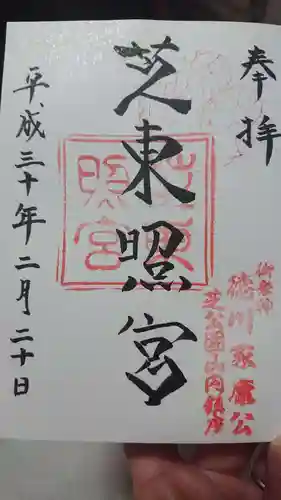 奉拝
御祭神
徳川家康公
芝公園山内鎮座
芝東照宮
芝東照宮
平成三十年二月二十日